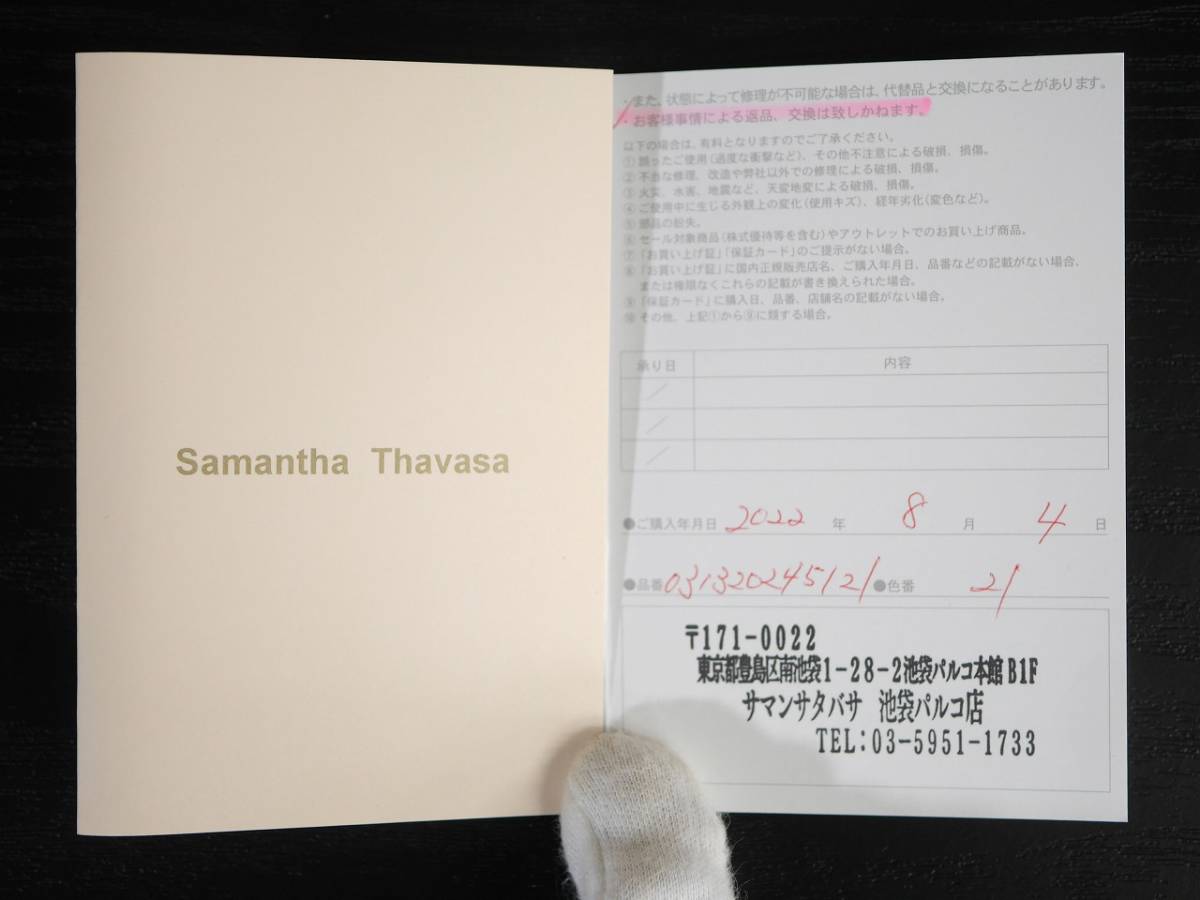 Samantha Thavasa
・また、状態によって修理が不可能な場合は、代替品と交換になることがあります。
・お客様事情による返品、交換は致しかねます。
以下の場合は、有料となりますのでご了承ください。
① 誤ったご使用(過度な衝撃など)、その他不注意による破損、損傷。
② 不当な修理、改造や弊社以外での修理による破損、損傷。
③ 火災、水害、地震など、天変地変による破損、損傷。
④ ご使用中に生じる外観上の変化(使用キズ)、経年劣化(変色など)。
⑤ 部品の紛失。
⑥ セール対象商品(株式優待等を含む)やアウトレットでのお買い上げ商品。
⑦ 「お買い上げ証」「保証カード」のご提示がない場合。
⑧ 「お買い上げ証」に国内正規販売店名、ご購入年月日、品番などの記載がない場合、
または権限なくこれらの記載が書き換えられた場合。
⑨ 「保証カード」に購入日、品番、店舗名の記載がない場合。
⑩ その他、上記①から⑨に類する場合。
承り日 内容
／
／
／
●ご購入年月日 2022 年 8 月 4 日
●品番 031320245121 ●色番 21
〒171-0022
東京都豊島区南池袋1-28-2池袋パルコ本館B1F
サマンサタバサ 池袋パルコ店
TEL:03-5951-1733